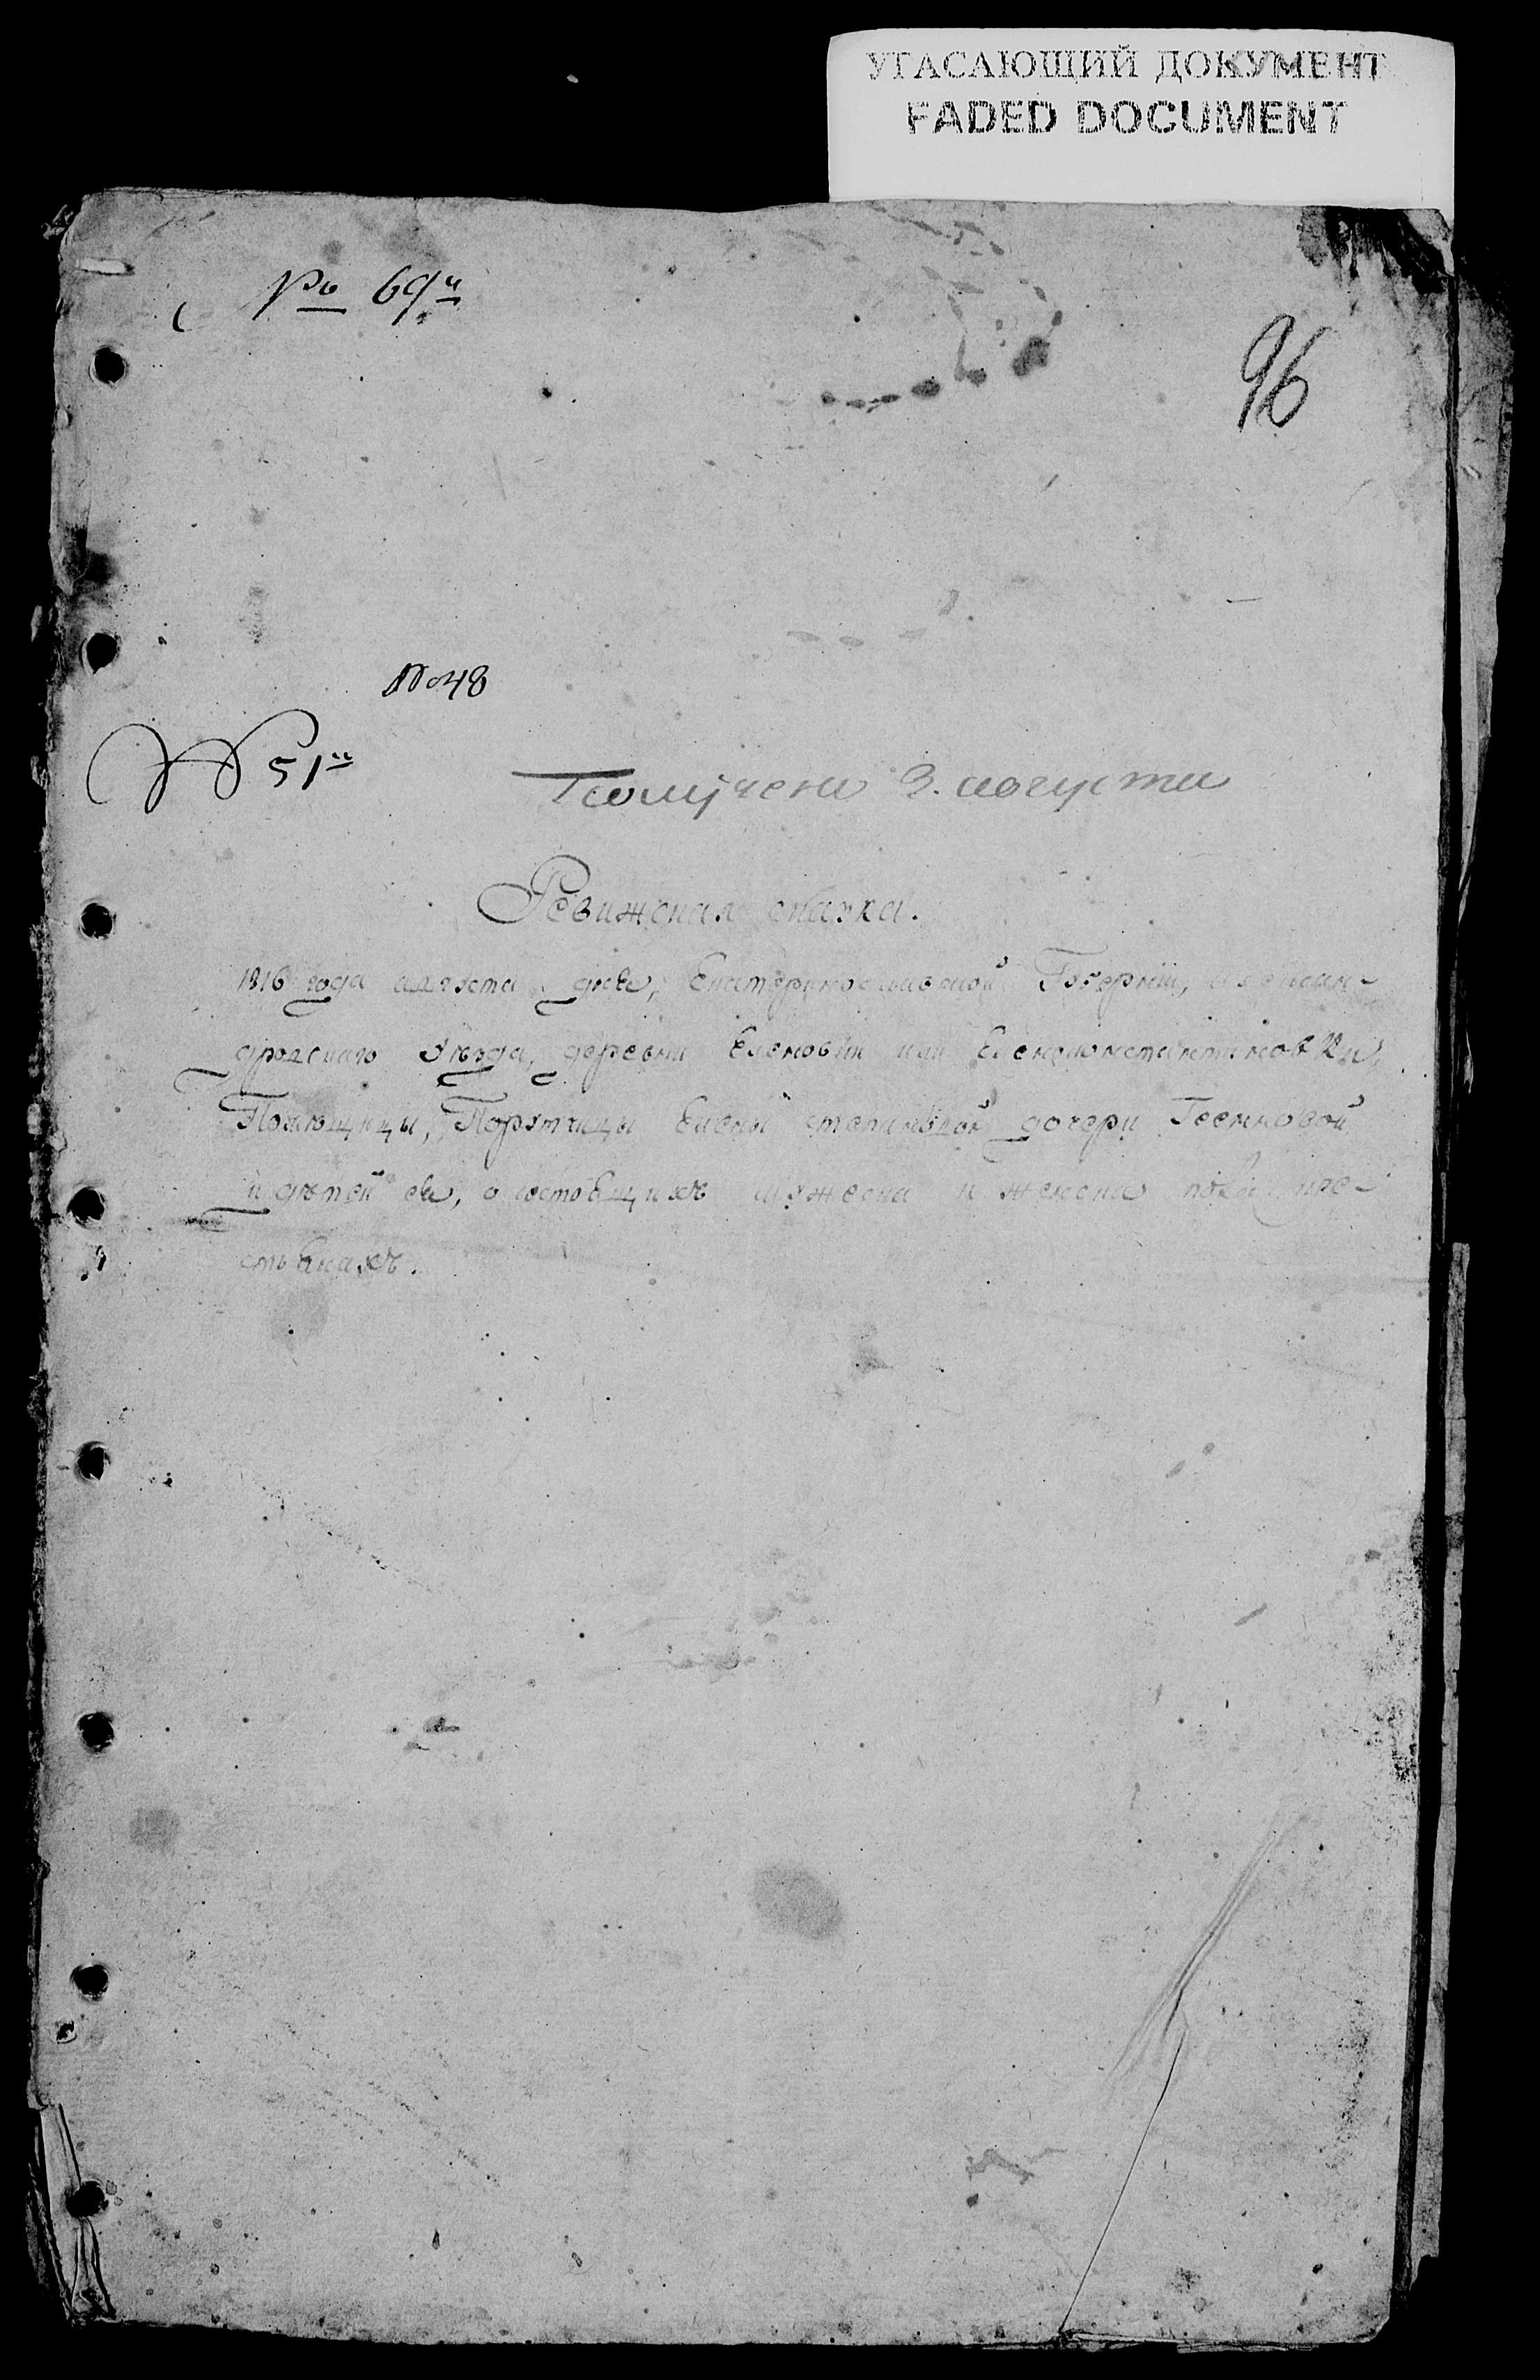 УГАСАЮЩИЙ ДОКУМЕНТ
FADED DOCUMENT
№ 69й
96
№ 48
№ 51й
Получена 3. августа
Ревижская сказка.
1816 года августа дня, Екатеринославской Губернии, Алексан-
дровскаго уѣзда, деревни Еленовки или Еленоконстантиновки,
Помѣщицы, Порутчицы Елены степановой дочери
и дѣтей ея, о состоящихъ мужеска и женска пола кре-
стьянахъ.